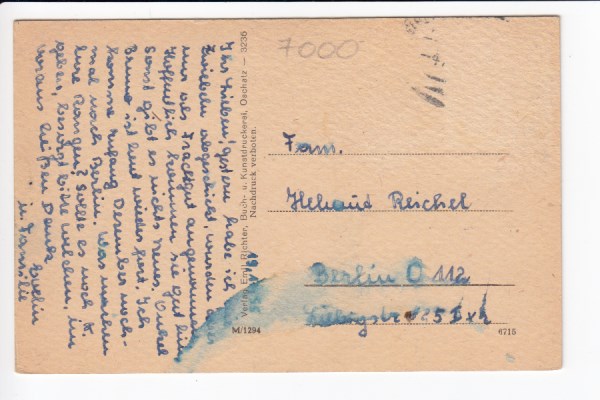 7000
Ihr Lieben! Gestern habe ich
Zwiebeln abgeschickt, wurden aber
nur als Frachtgut angenommen.
Hoffentlich kommen sie gut hin.
Sonst gibt es nichts Neues. Onkel
Bruno ist heut wieder fort. Ich
komme Anfang Dezember noch-
mal nach Berlin. Was machen
Eure Rangen? Sollte es noch K.
geben, besorgt bitte welchen, im
voraus heißen Dank
Evelin
u. Familie
Verlag Emil Richter, Buch- u. Kunstdruckerei, Oschatz — 3236
Nachdruck verboten.
Fam.
Helmut Reichel
Berlin O 112
M/1294
6715